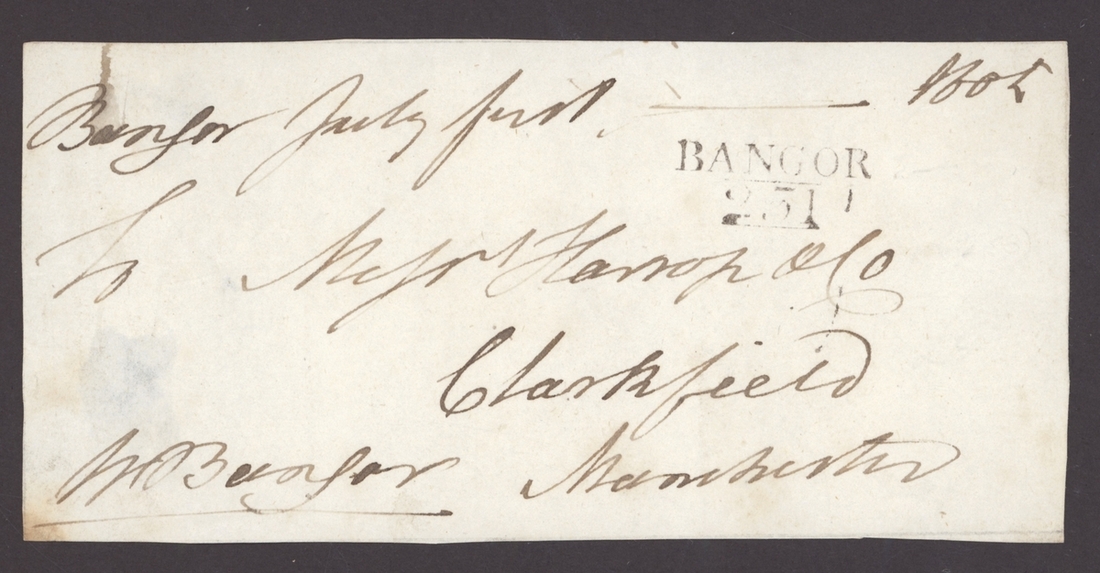 Bangor July first 1805
BANGOR
231
To Messrs Harrop & Co
Clarkfield
W Bangor Manchester